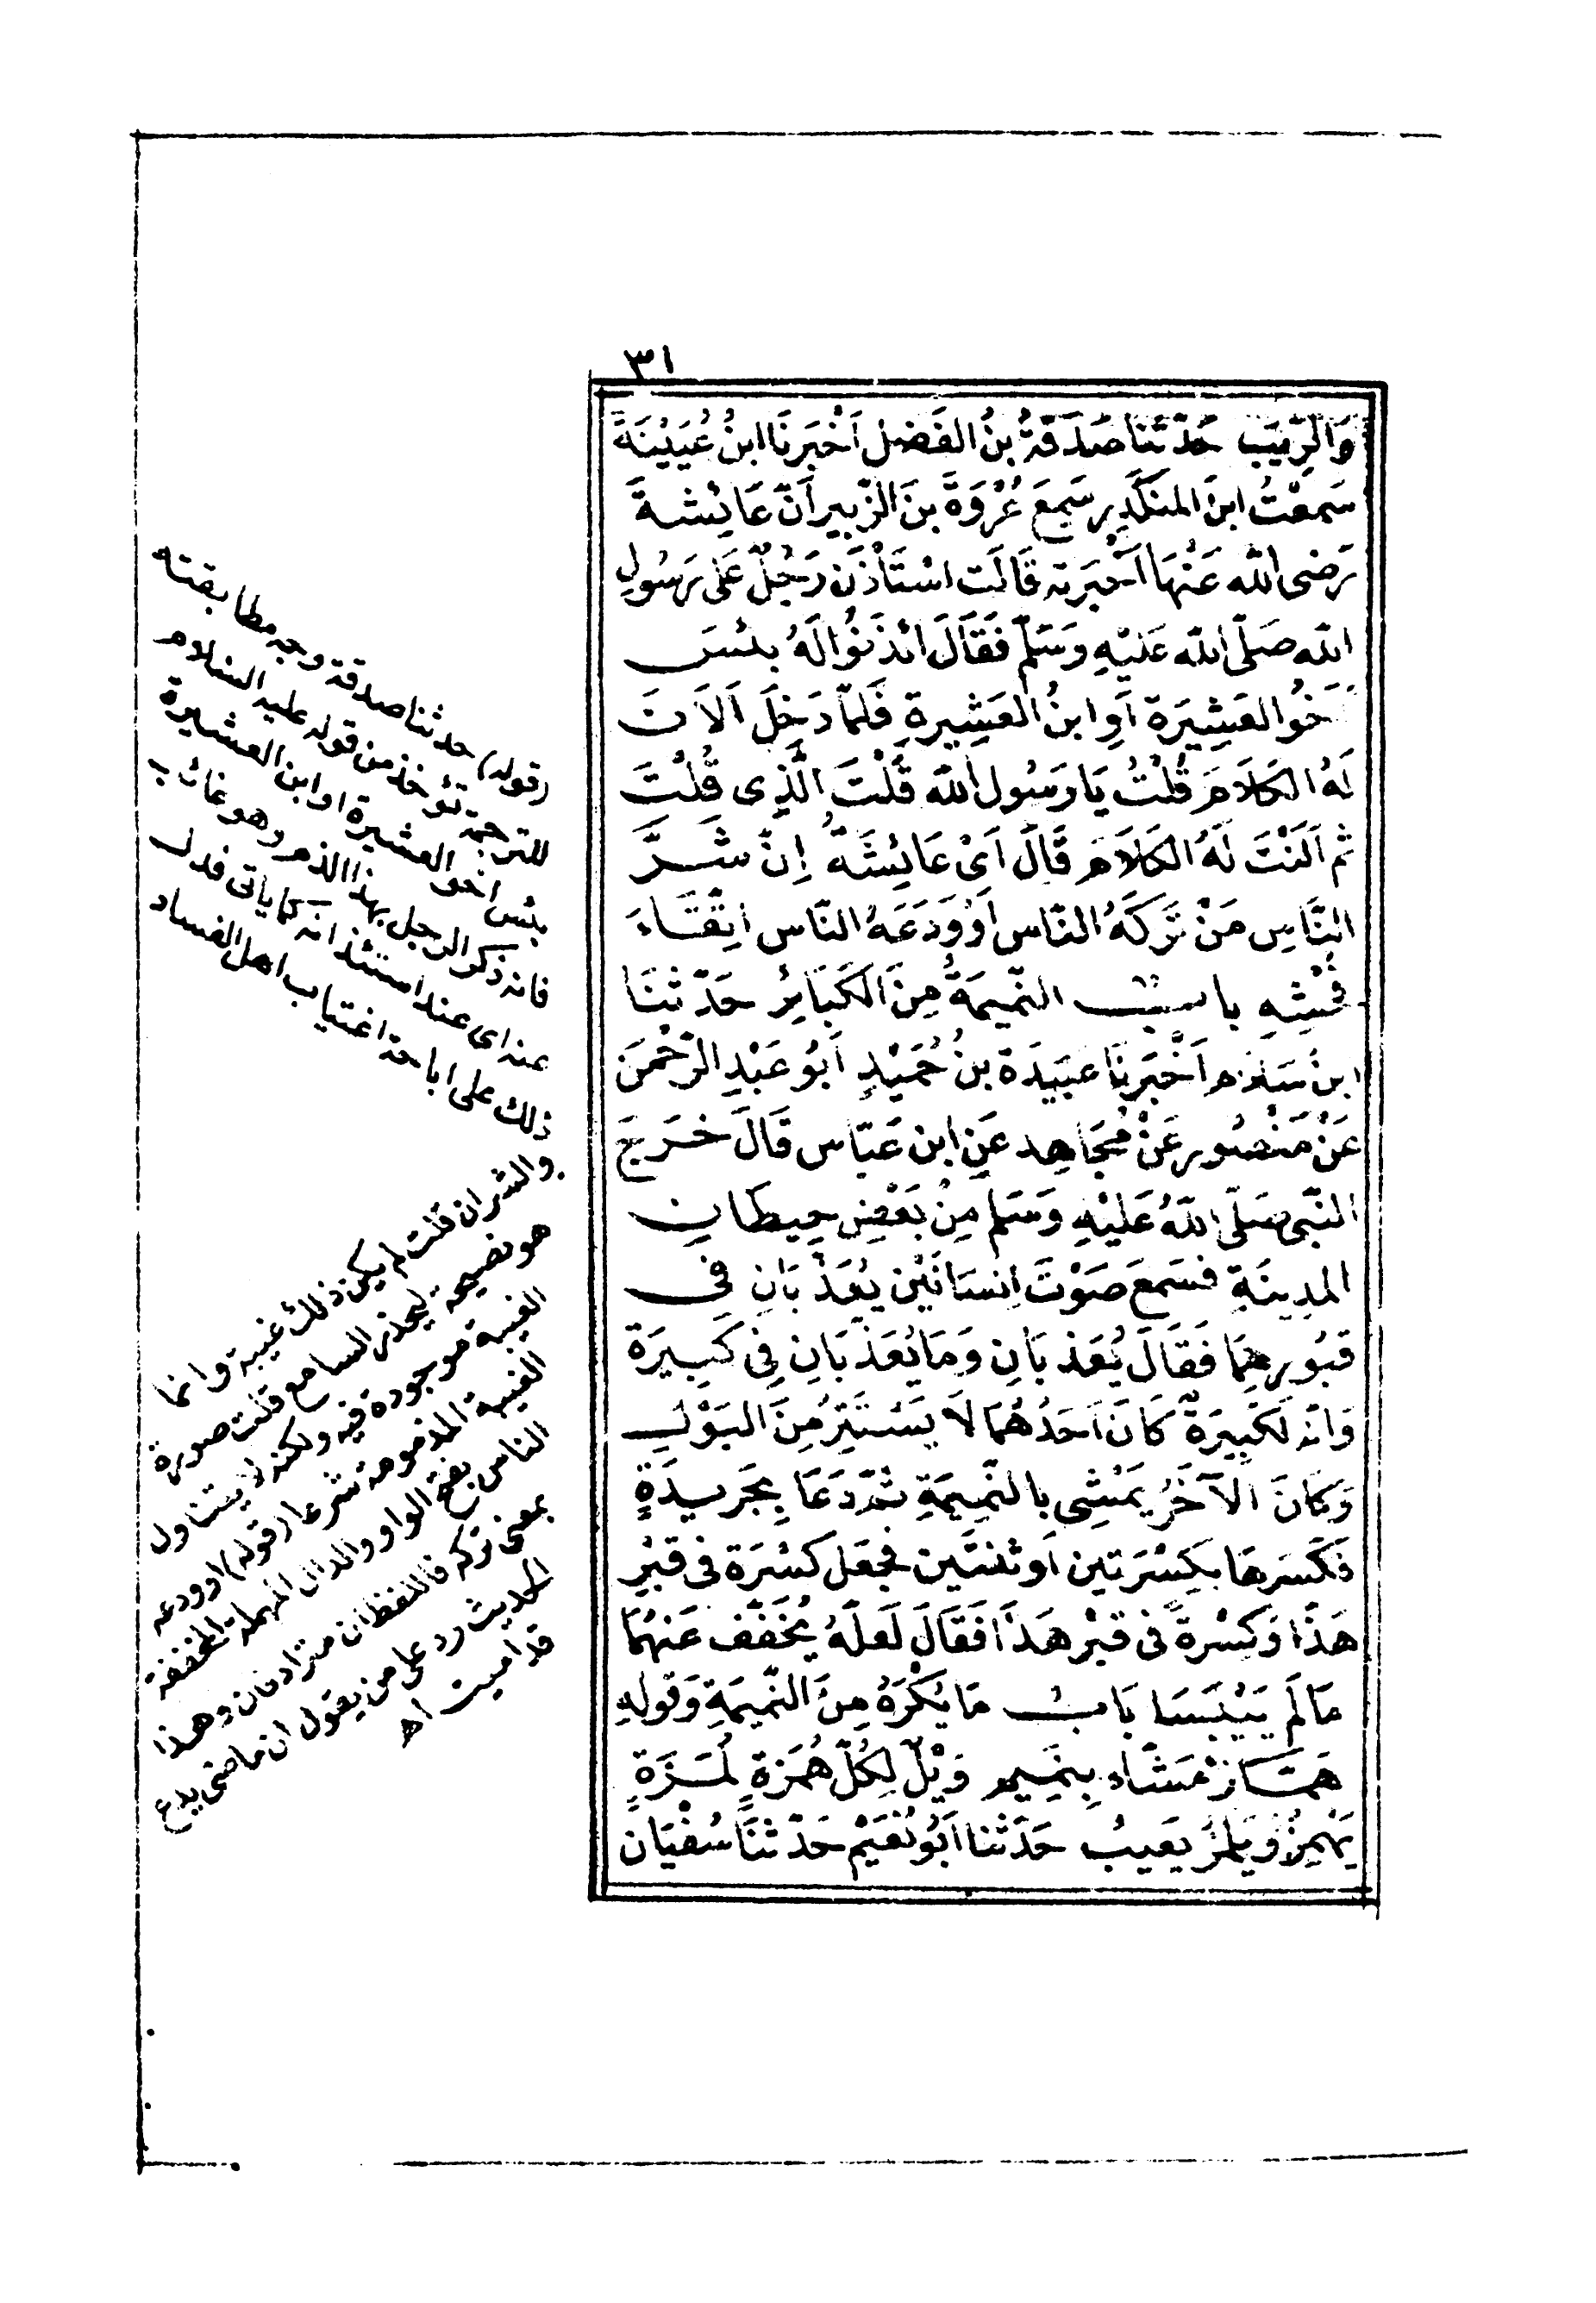 ٣١
وَالرِّيَبِ حَدَّثَنَا صَدَقَةُ بنُ الفَضل أَخْبَرنَا ابنُ عُيَيْنَةَ
سَمِعْتُ ابنَ المنكَدِر سَمِعَ عُرْوَةَ بنَ الزّبير أنّ عَائِشةَ
رَضى الله عَنْهَا أخبَرته قَالَت اسْتَأْذَن رَجُلٌ عَلى رَسُولِ
الله صَلّى الله عَليْهِ وَسَلّم فَقَالَ ائذَنُوا لَهُ بِئسَ
أخُو العَشِيرَة أوِ ابنُ العَشِيرةِ فَلمّا دَخلَ أَلاَنَ
لَهُ الكَلاَمَ قُلْتُ يَا رَسُول الله قُلْتَ الَّذِى قُلْتَ
ثم أَلَنْتَ لَهُ الكَلاَمَ قَالَ أىْ عَائِشَةُ إِنّ شَرَّ
النَّاسِ مَنْ تَرَكَهُ النّاس أوْ وَدَعَهُ النّاس اتّقَاءَ
فُحْشِهِ بابٌ النّمِيمَةُ مِنَ الكَبَائِر حَدّثنَا
ابنُ سَلام أخْبَرنَا عبَيدَة بنُ حُمَيْدٍ أبُو عَبْدِ الرّحْمنَ
عَنْ مَنْصُور عَنْ مُجَاهِد عَنِ ابن عَبّاس قَالَ خَرَجَ
النّبى صَلّى اللهُ عَليْهِ وَسَلم مِنْ بَعْضِ حِيطَانِ
المدِينَةِ فسَمعَ صَوْتَ إنسَانَيْن يُعَذّبَانِ فِى
قبُورِهِمَا فَقَالَ يُعَذبَانِ وَمَا يُعَذبَانِ فِى كَبِيرَة
وَانّه لَكَبِيرَةٌ كَانَ أحَدُهُمَا لاَ يَسْتَتِرُ مِنَ البَوْلِ
وَكانَ الآخَرُ يَمْشِى بالنّمِيمَةِ ثمّ دَعَا بِجَريدَةٍ
فَكَسَرهَا بكِسْرَتين أو ثنتَين فجَعَل كسْرَة فى قبْرِ
هَذَا وَكسْرةً فى قبْر هَذَا فقَالَ لَعَلّهُ يُخَفّف عَنهُمَا
مَا لَم يَيْبَسَا بَابُ مَا يُكْرَهُ مِنَ النّمِيمَةِ وَقولهِ
هَمّازٍ مَشّاءٍ بِنَمِيمٍ وَيْلٌ لِكُلّ هُمَزةٍ لُمَزَةٍ
يَهْمِزُ وَيَلمزُ يَعِيبُ حَدّثنا أبُو نُعَيْم حَدّثنَا سُفْيَان
(قوله) حدثنا صدقة وجه مطابقته
للترجمة تؤخذ من قوله عليه السلام
بئس أخو العشيرة او ابن العشيرة
فانه ذكر الرجل بهذا الذم وهو غائب
عنه اى عند استئذانه كما ياتى فدل
ذلك على اباحة اغتياب اهل الفساد
والشر ان قلت لم يكن ذلك غيبة وانما
هو نصيحة ليحذر السامع قلت صورة
الغيبة موجودة فيه ولكنه لا يتناول
الغيبة المذمومة شرعا (قوله) اوودعه
الناس بفتح الواو والدال المهملة المخففة
بمعنى تركه فاللفظان مترادفان وهذا
الحديث رد على من يقول ان ماضى يدع
قد اميت اه